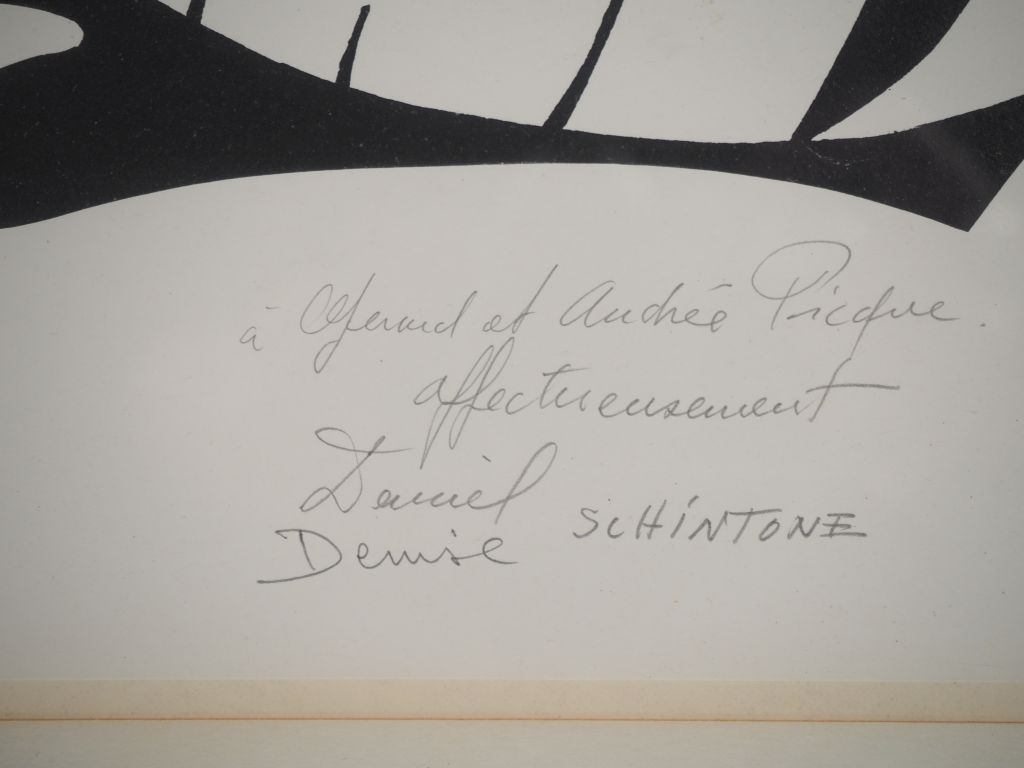 à Gérard et Andrée Picque.
affectueusement
Daniel
Denise SCHINTONE